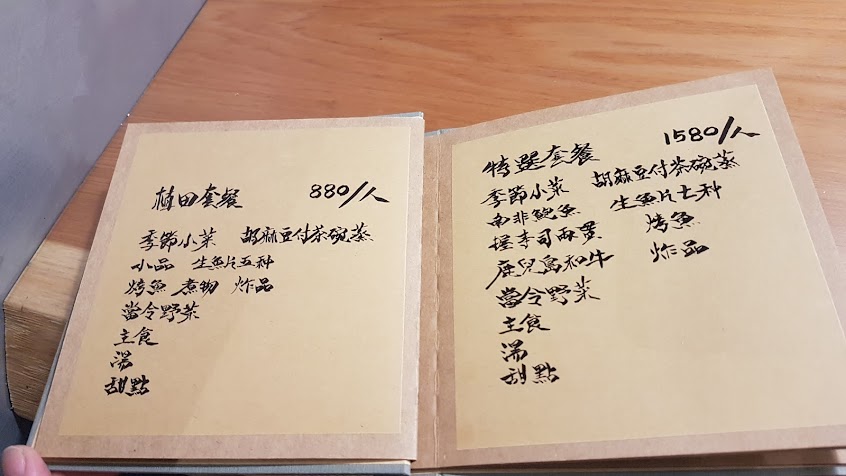 植田套餐 880/人
季節小菜 胡麻豆付茶碗蒸
小品 生魚片五种
烤魚 煮物 炸品
當令野菜
主食
湯
甜點
特選套餐 1580/人
季節小菜 胡麻豆付茶碗蒸
南非鮑魚 生魚片七种
握寿司兩貫 烤魚
鹿兒島和牛 炸品
當令野菜
主食
湯
甜點